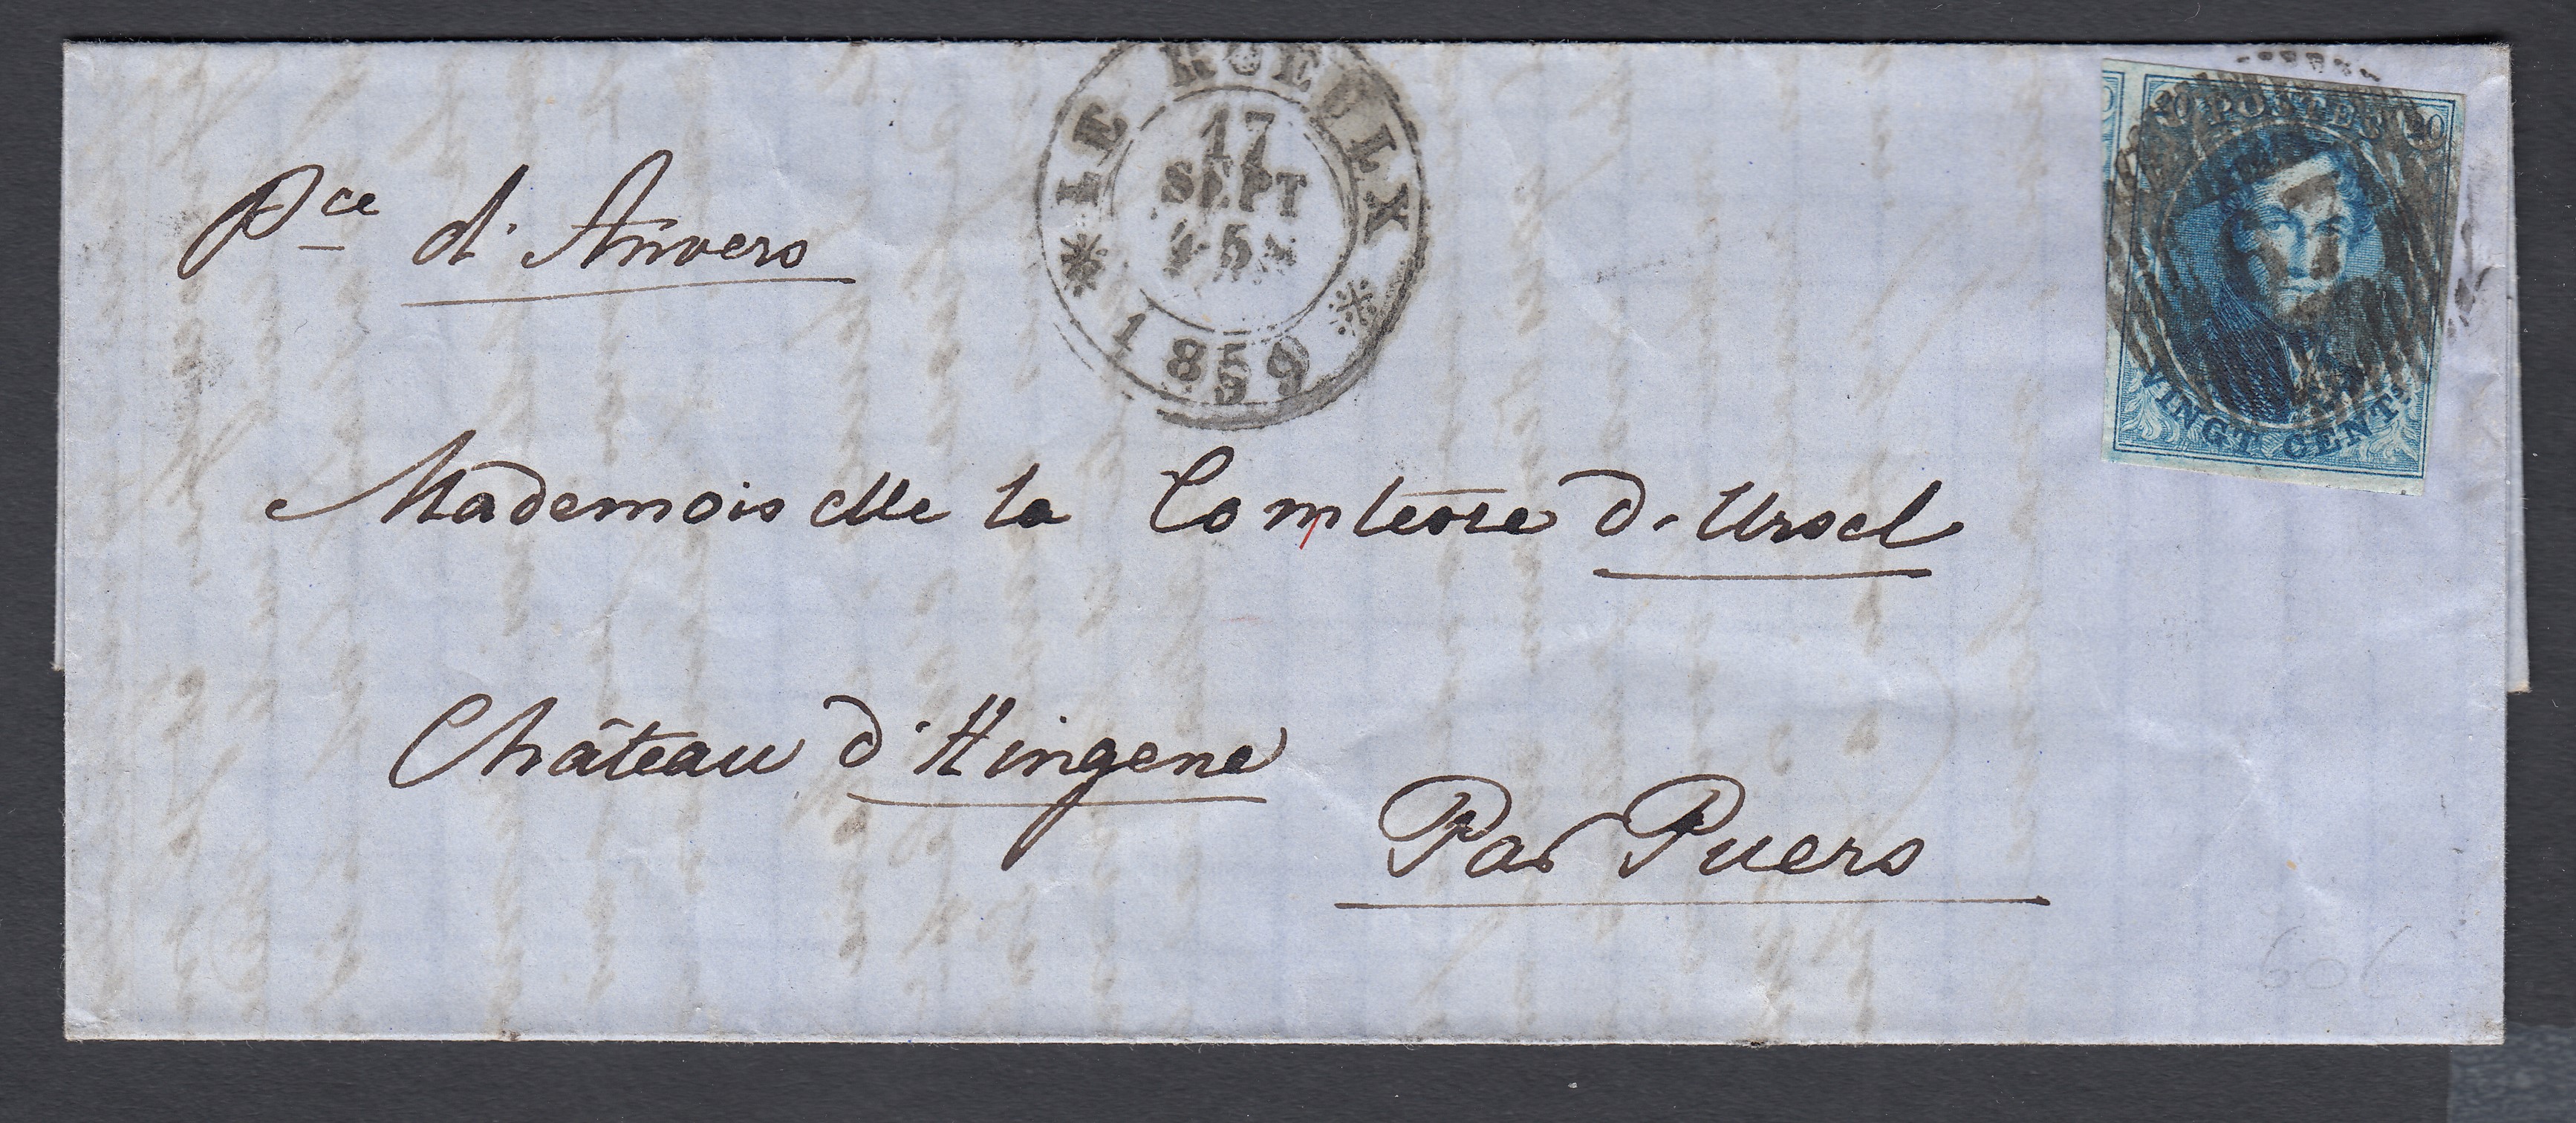 LE ROEULX
17
SEPT
1859
20 POSTES 20
VINGT CENTS
Pce d'Anvers
Mademoiselle la Comtesse d'Ursel
Château d'Hingene
Par Puers